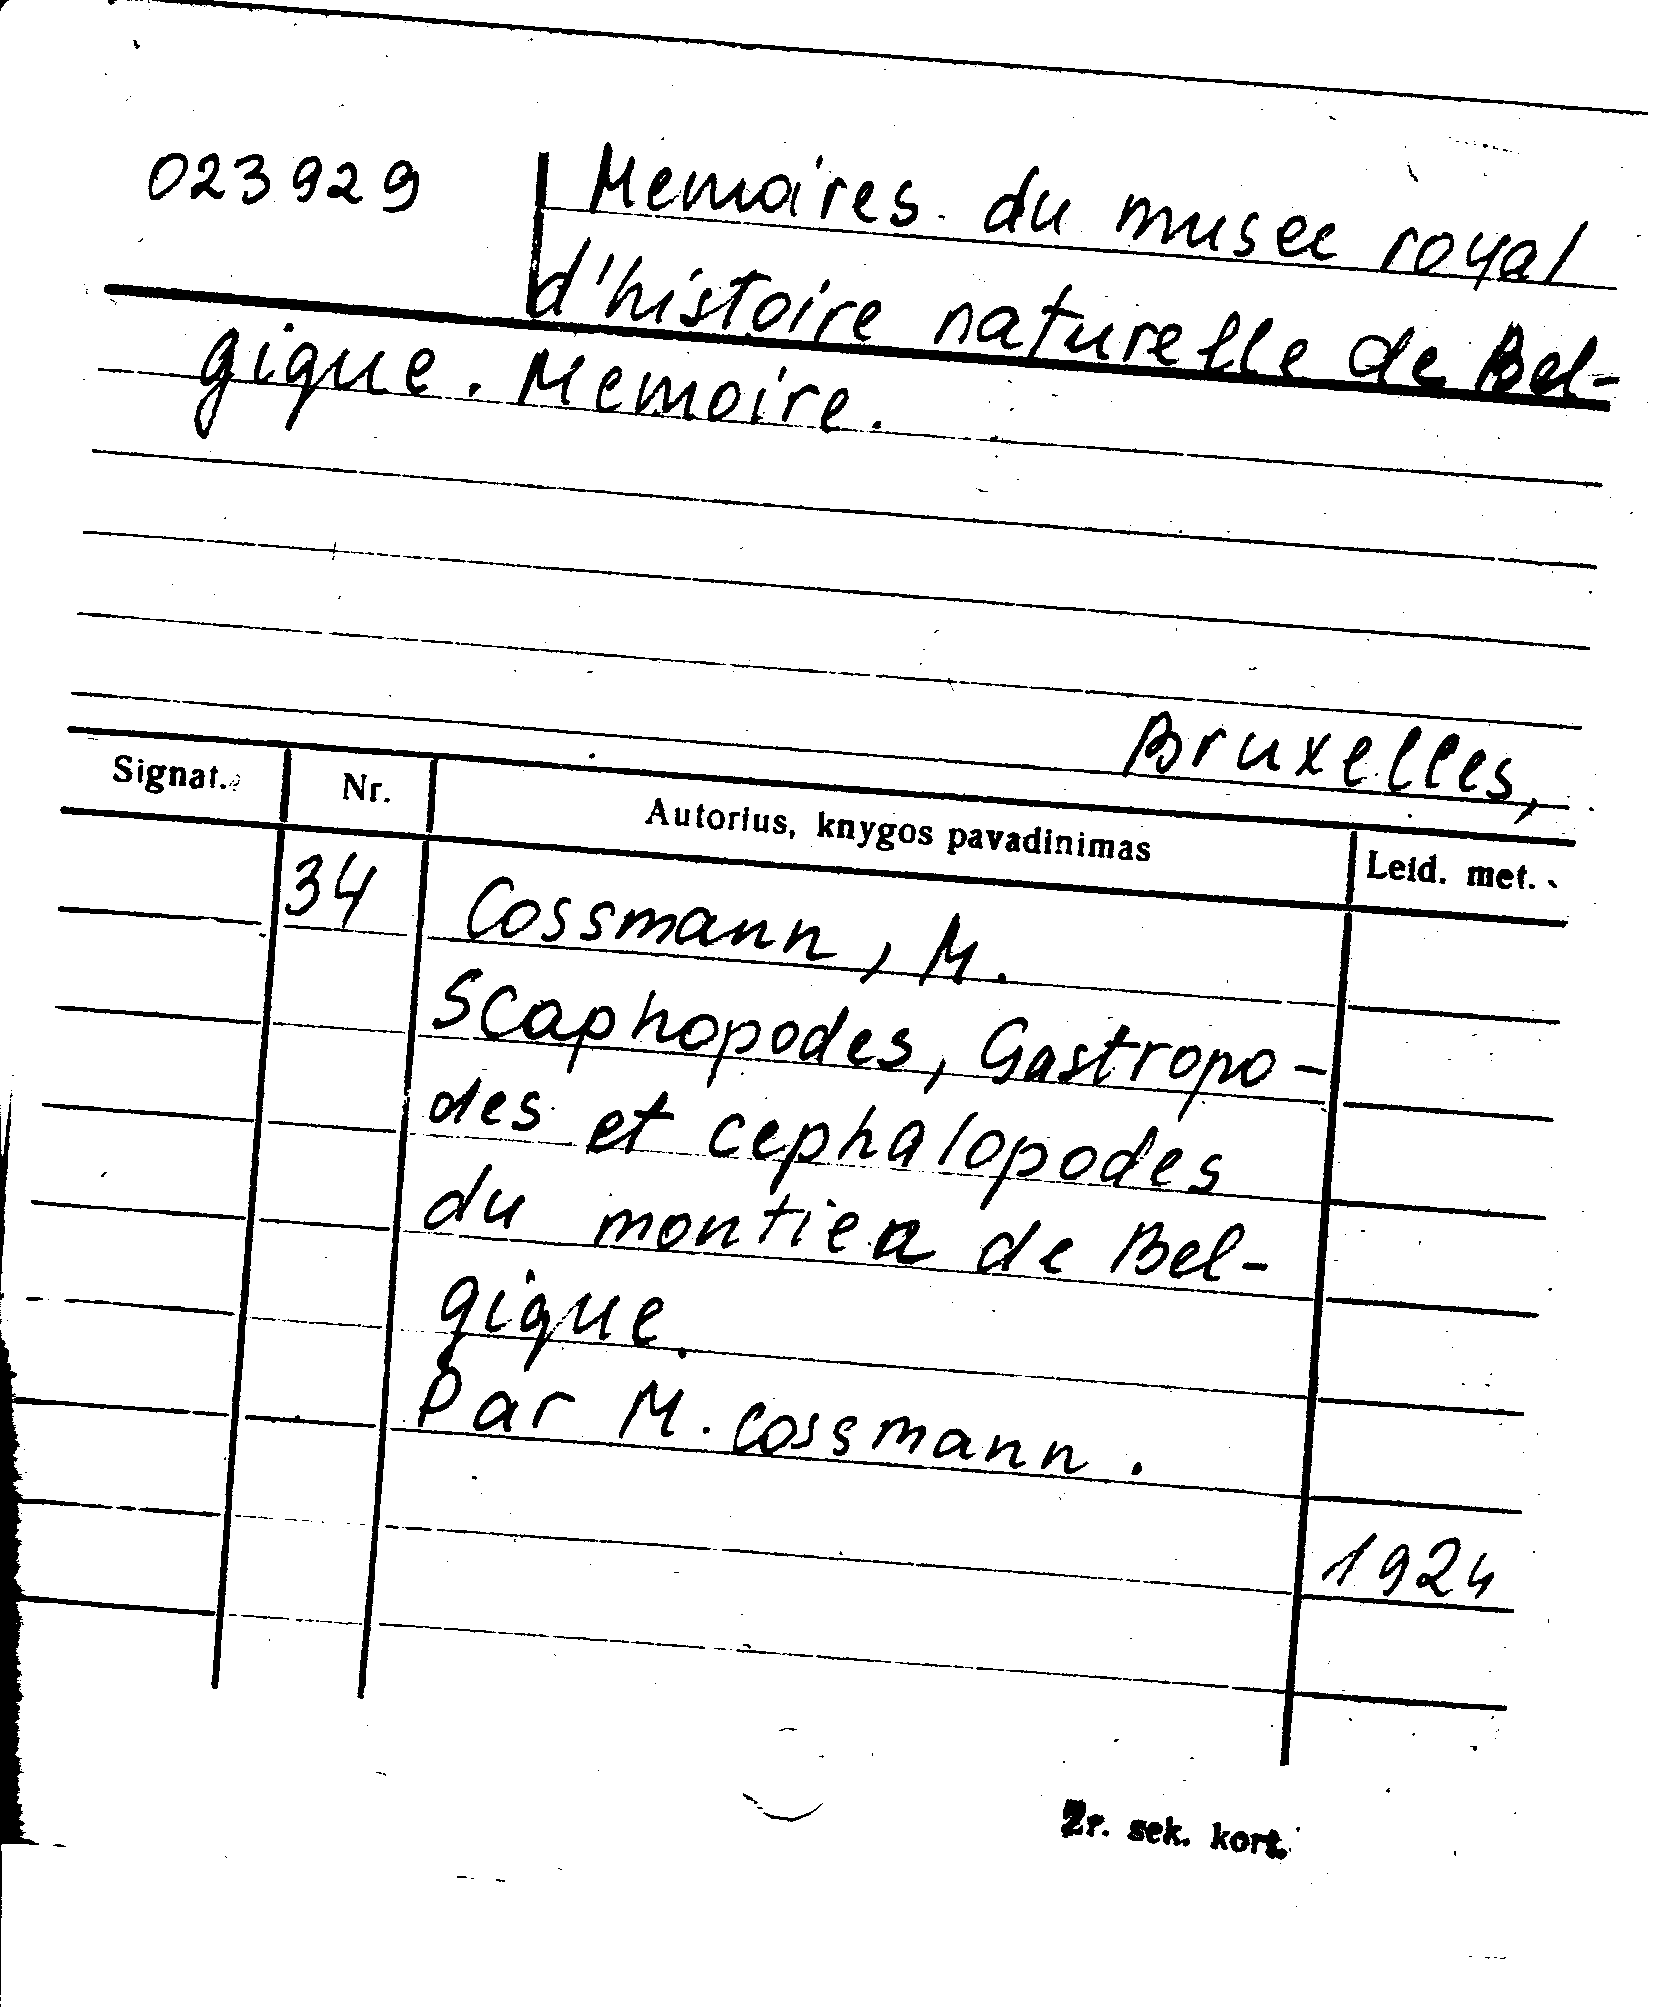 023929 Memoires du musee royal
d'histoire naturelle de Bel-
gique. Memoire.
Bruxelles,
Signat. Nr. Autorius, knygos pavadinimas Leid. met.
34 Cossmann, M.
Scaphopodes, Gastropo-
des et cephalopodes
du montien de Bel-
gique.
Par M. Cossmann.
1924
Žr. sek. kort.